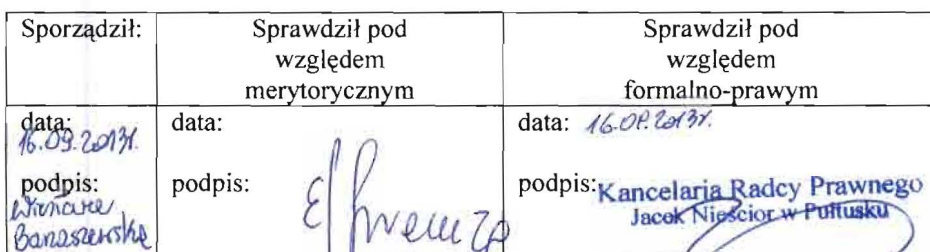 Sporządził:
Sprawdził pod
względem
merytorycznym
Sprawdził pod
względem
formalno-prawym
data:
16.09.2013r.
podpis:
Banaszewska
data:
podpis:
data: 16.09.2013r.
podpis:
Kancelaria Radcy Prawnego
Jacek Nieścior w Pułtusku